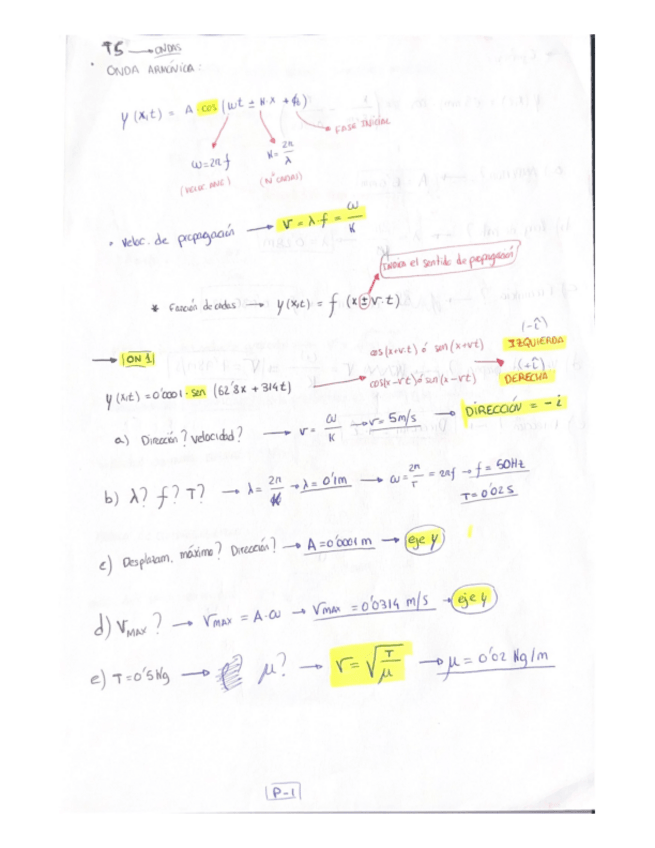 T5 → ONDAS
ONDA ARMÓNICA:
y (x,t) = A · cos (ωt ± K·x + ϕ₀)
FASE INICIAL
ω = 2π f
K = 2π/λ
(VELOC. ANG)
(Nº ONDAS)
• Veloc. de propagación → v = λ·f = ω/K
Indica el sentido de propagación
* Función de ondas → y(x,t) = f (x ± v·t)
(-î)
→ ON 1
cos(x+v·t) ó sen(x+vt) → IZQUIERDA
(+î)
y(x,t) = 0'0001 · sen (62'8x + 314t) → cos(x-vt) ó sen(x-vt) DERECHA
a) Dirección? velocidad? → v = ω/K → v = 5m/s → DIRECCIÓN = - i
b) λ? f? T? → λ = 2π/K → λ = 0'1m → ω = 2π/T = 2πf → f = 50Hz
T = 0'02 s
c) Desplazam. máximo? Dirección? → A = 0'0001 m → eje y
d) VMAX? → VMAX = A·ω → VMAX = 0'0314 m/s → eje y
e) T = 0'5 Ng → μ? → v = √(T/μ) → μ = 0'02 Kg/m
P-1